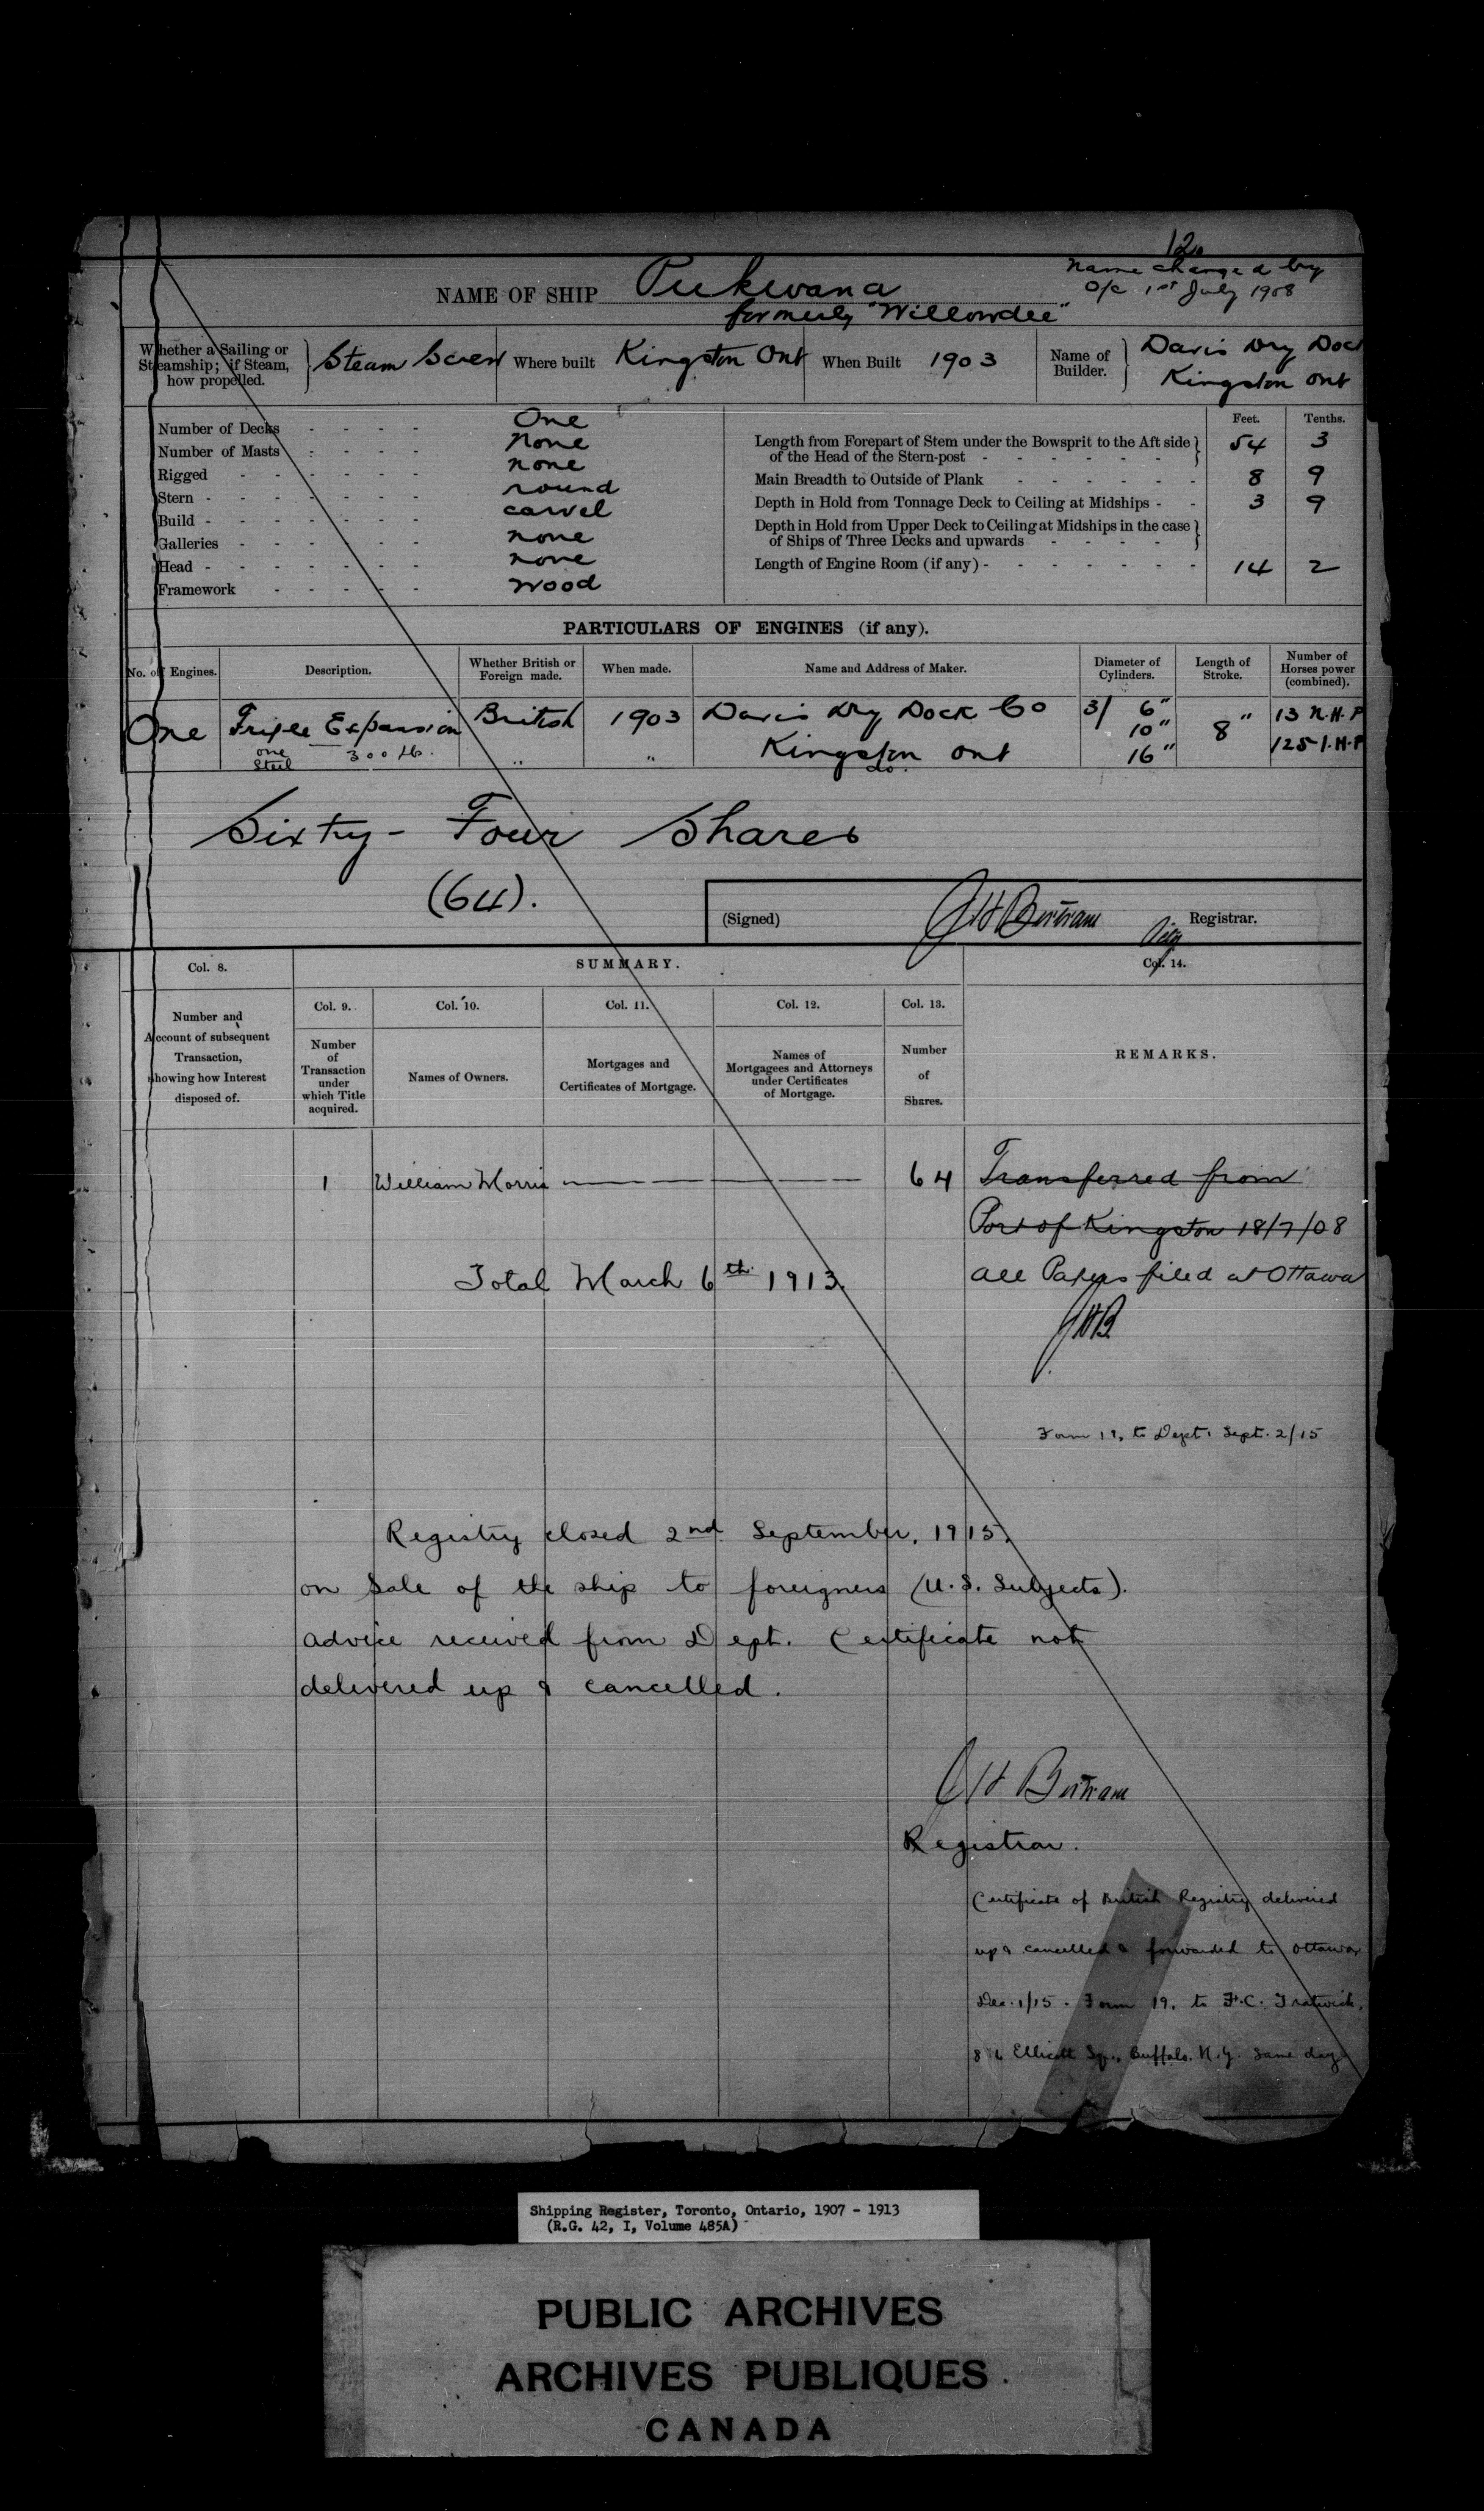 12.
Name changed by
O/c 1st July 1908
NAME OF SHIP Pukwana
formerly "Willowdee"
Whether a Sailing or Steamship; if Steam, how propelled. Steam Screw Where built Kingston Ont When Built 1903 Name of Builder. Davis Dry Doc
Kingston Ont
Feet. Tenths.
Number of Decks - - - - One
Number of Masts - - - - none
Rigged - - - - none
Stern - - - - round
Build - - - - carvel
Galleries - - - - none
Head - - - - none
Framework - - - - wood
Length from Forepart of Stem under the Bowsprit to the Aft side
of the Head of the Stern-post - - - - 54 3
Main Breadth to Outside of Plank - - - - 8 9
Depth in Hold from Tonnage Deck to Ceiling at Midships - - 3 9
Depth in Hold from Upper Deck to Ceiling at Midships in the case
of Ships of Three Decks and upwards - - - -
Length of Engine Room (if any) - - - - 14 2
PARTICULARS OF ENGINES (if any).
No. of Engines. Description. Whether British or Foreign made. When made. Name and Address of Maker. Diameter of Cylinders. Length of Stroke. Number of Horses power (combined).
One Triple Expansion British 1903 Davis Dry Dock Co 3/ 6" 13 N.H.P
10" 8"
one Steel 300 lb. " " Kingston Ont 16" 125 I.H.P
do.
Sixty-Four Shares
(64).
(Signed) J H Bertram Registrar.
Col. 8. SUMMARY. Col. 14.
Col. 9. Col. 10. Col. 11. Col. 12. Col. 13.
Number and
Account of subsequent
Transaction,
showing how Interest
disposed of.
Number
of
Transaction
under
which Title
acquired.
Names of Owners.
Mortgages and
Certificates of Mortgage.
Names of
Mortgagees and Attorneys
under Certificates
of Mortgage.
Number
of
Shares.
REMARKS.
1 William Morris 64 Transferred from
Port of Kingston 18/7/08
Total March 6th 1913. All Papers filed at Ottawa
JHB
Form 19, to Dept. Sept. 2/15
Registry closed 2nd September, 1915,
on Sale of the ship to foreigners (U.S. Subjects).
Advice received from Dept. Certificate not
delivered up & cancelled.
J H Bertram
Registrar.
Certificate of British Registry delivered
up & cancelled & forwarded to Ottawa
Dec. 1/15. Form 19, to F.C.
Ellicott Sq., Buffalo, N.Y. same day
Shipping Register, Toronto, Ontario, 1907 - 1913
(R.G. 42, I, Volume 485A)
PUBLIC ARCHIVES
ARCHIVES PUBLIQUES
CANADA